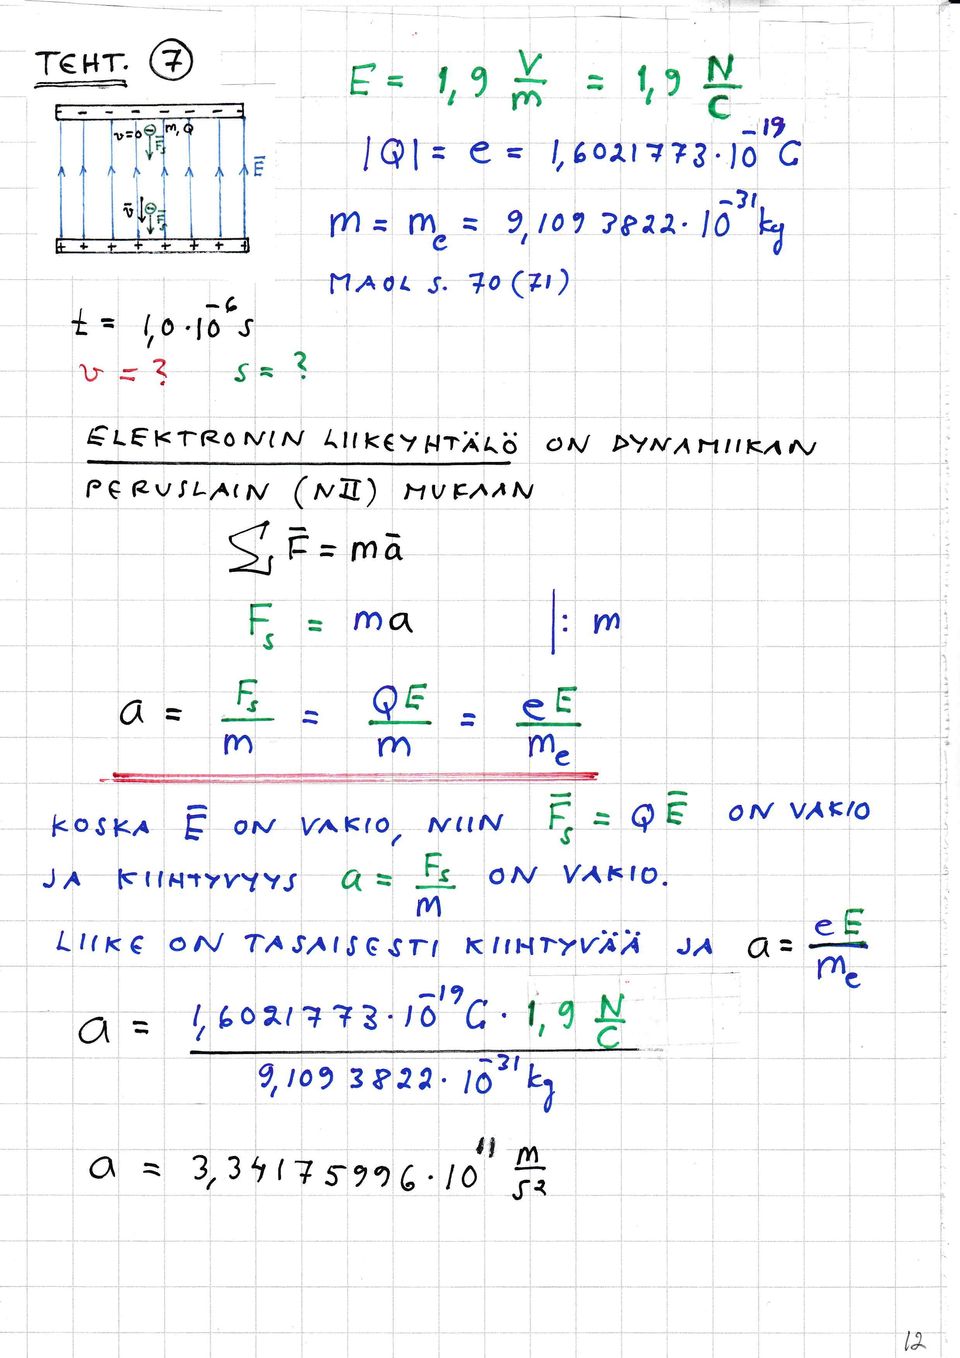 TEHT. 7
E = 1,9 V/m = 1,9 N/C
|Q| = e = 1,6021773·10⁻¹⁹ C
m = mₑ = 9,1093822·10⁻³¹ kg
MAOL S. 70 (71)
- - - - - - - -
v=0 ⊖ m, Q
F̄s
Ē
v̄ ⊖ F̄s
+ + + + + + + +
t = 1,0·10⁻⁶ s
v = ? s = ?
ELEKTRONIN LIIKEYHTÄLÖ ON DYNAMIIKAN
PERUSLAIN (NII) MUKAAN
∑ F̄ = mā
Fs = ma |: m
a = Fs/m = QE/m = eE/mₑ
KOSKA Ē ON VAKIO, NIIN F̄s = QĒ ON VAKIO
JA KIIHTYVYYS a = Fs/m ON VAKIO.
LIIKE ON TASAISESTI KIIHTYVÄÄ JA a = eE/mₑ
a = 1,6021773·10⁻¹⁹ C · 1,9 N/C / 9,1093822·10⁻³¹ kg
a = 3,34175996·10¹¹ m/s²
12